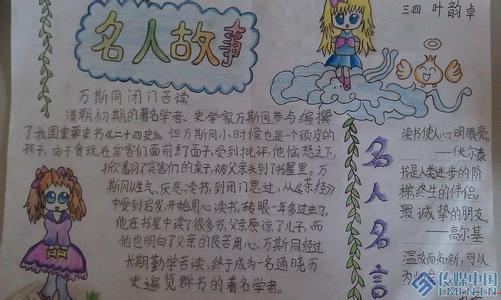 三四 叶韵卓
名人故事
万斯同闭门苦读
清朝初期的著名学者、史学家万斯同参与编撰
了我国重要史书《二十四史》。但万斯同小时候也是一个顽皮的
孩子。由于贪玩在宾客们面前丢了面子,受到批评,他恼怒之下,
掀翻了宾客们的桌子,被父亲关到了书屋里。万
斯同从生气、厌恶读书,到闭门思过,从《茶经》
中受到启发,开始用心读书。转眼一年多过去了,
他在书屋中读了很多书,父亲原谅了儿子,而
他也明白了父亲的良苦用心。万斯同经过
长期勤学苦读,终于成为一名通晓历
史遍览群书的著名学者。
名人名言
读书使人心明眼亮
——伏尔泰
书是人类进步的阶
梯,终生的伴侣,
最诚挚的朋友
——高尔基
温故而知新,可以
为
传媒中国
CMCN.CN